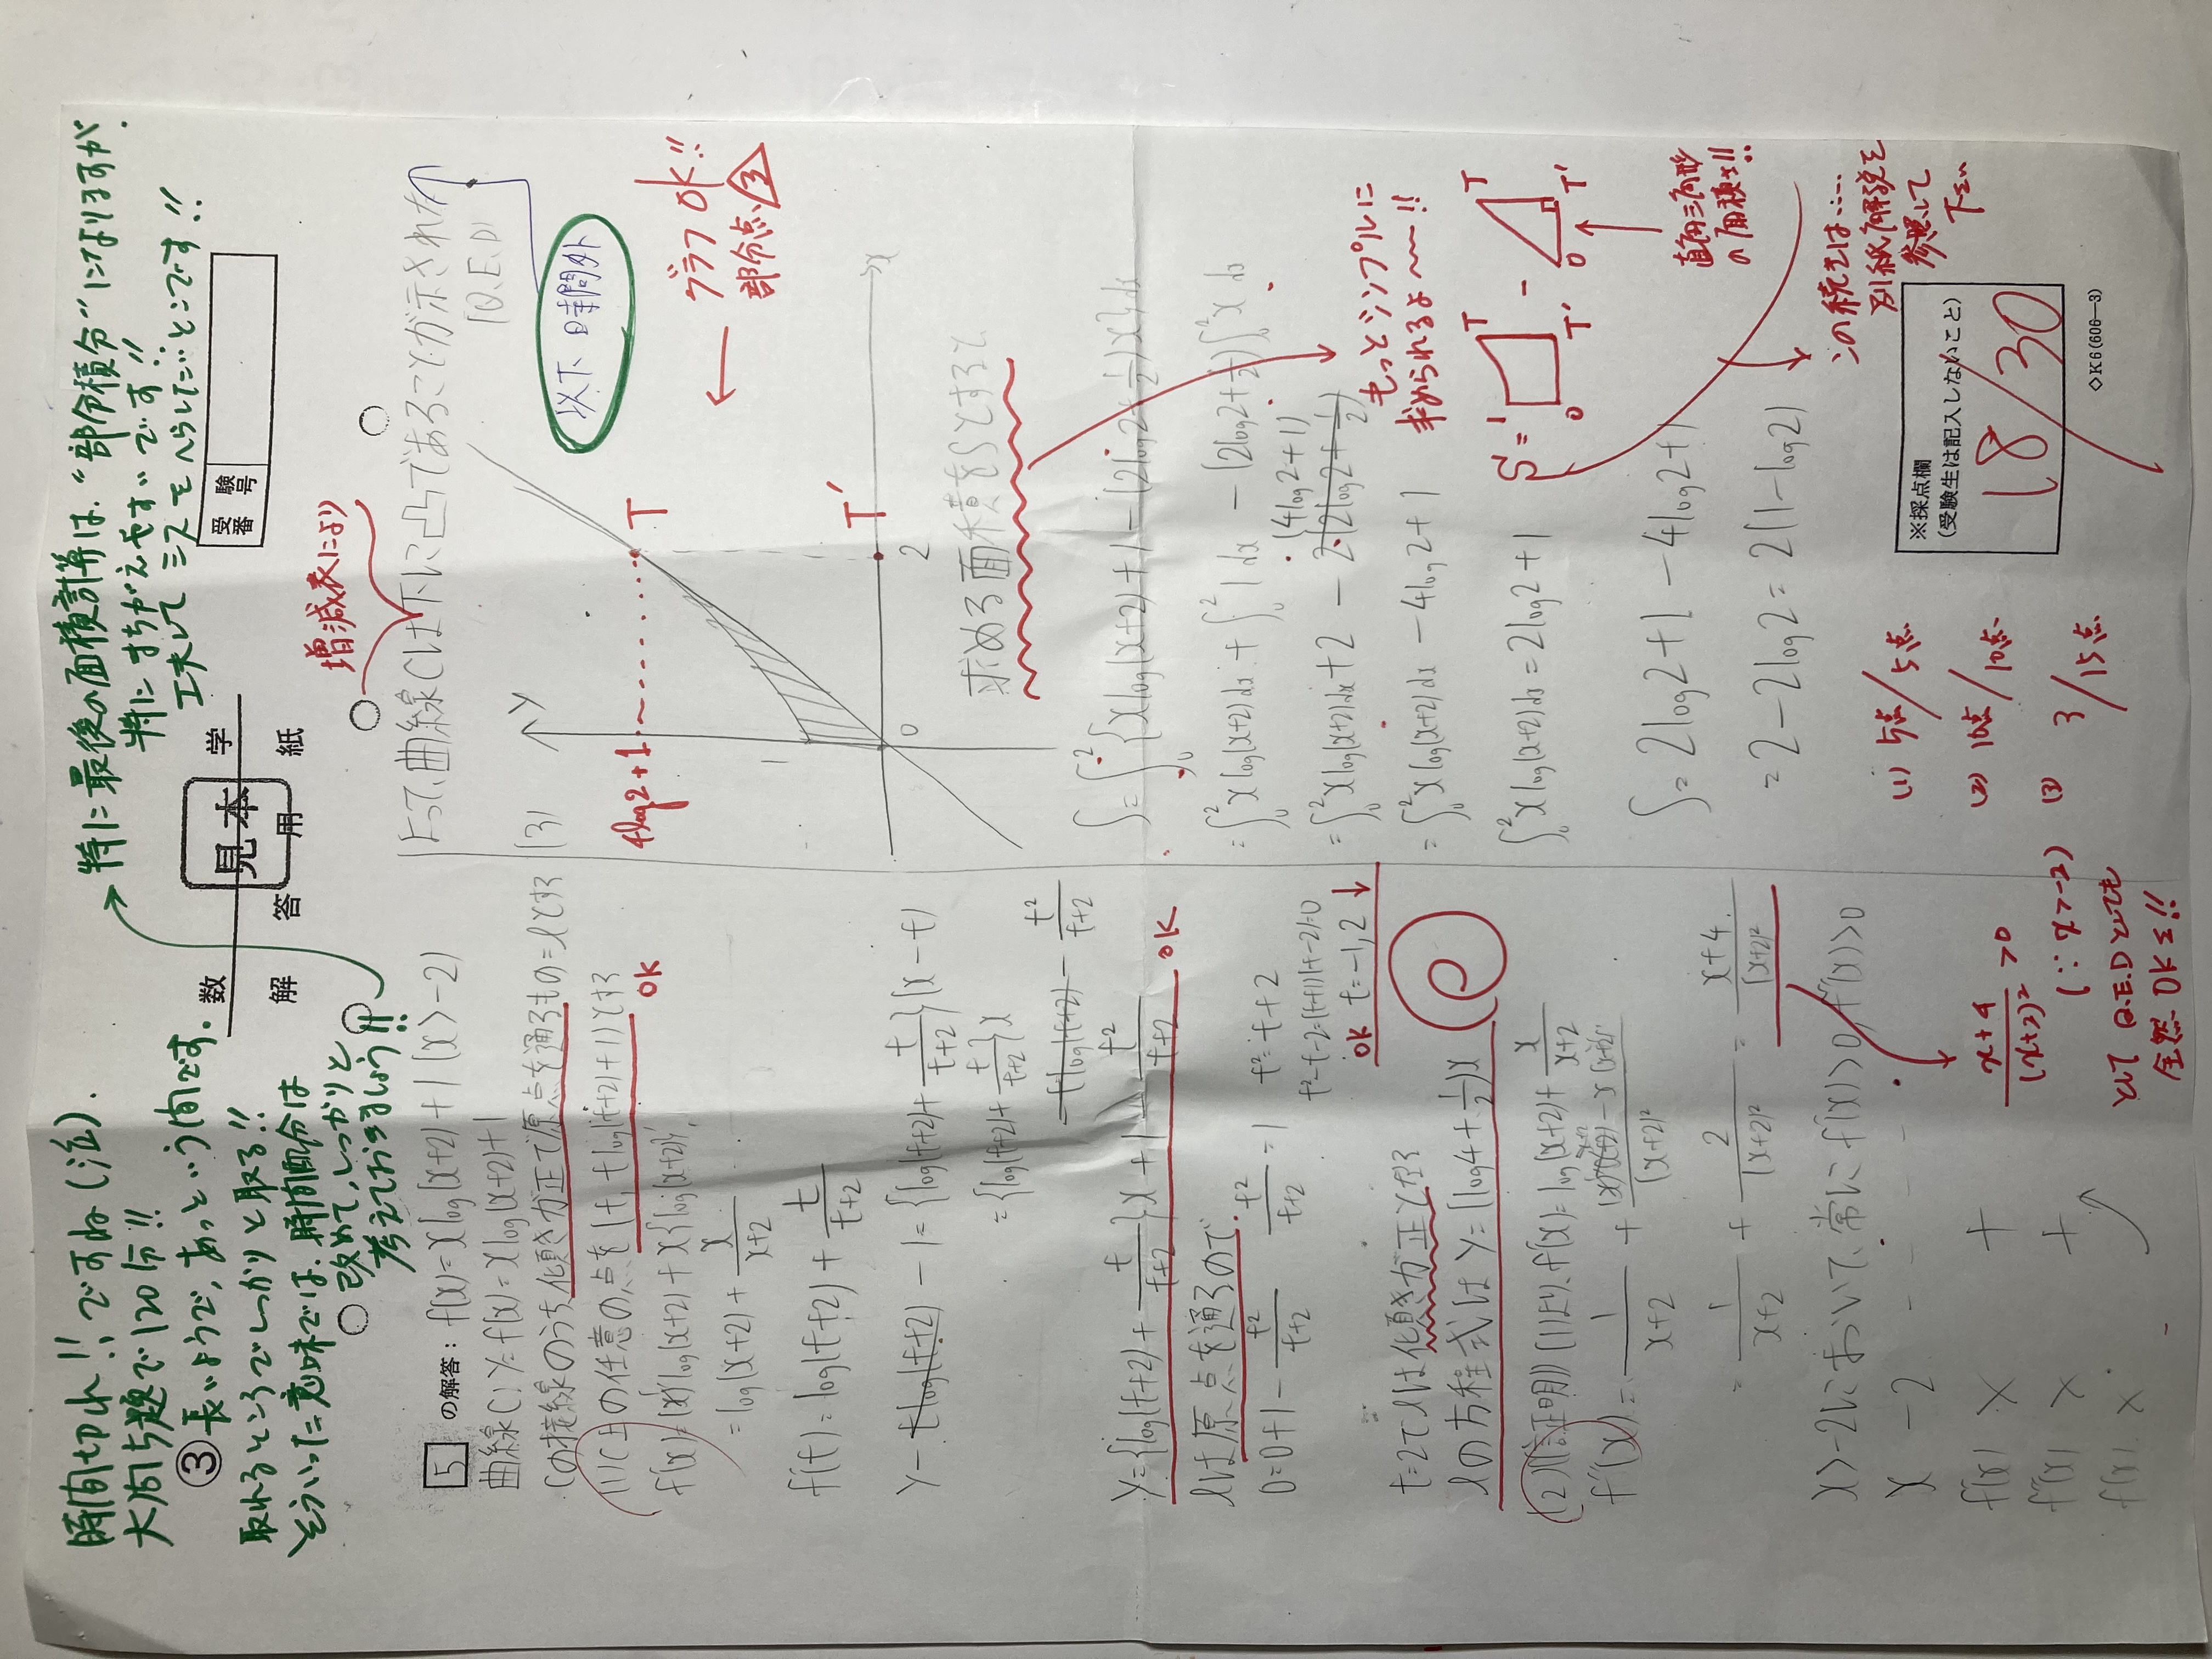 時間切れ!!ですね(泣).
大問5題で120分!!
③長いようで、あっという間です.
取れるところでしっかりと取る!!
そういった意味では、時間配分は
改めて、しっかりと
考えておきましょう!!
特に最後の面積計算は、"部分積分"になりますが、
特にまちがえやすいです!!
工夫してミスをへらしたいとこです!!
数 学
見本
解 答 用 紙
受験番号
5 の解答: f(x)=xlog(x+2)+1 (x>-2)
曲線C: y=f(x)=xlog(x+2)+1
Cの接線のうち傾きが正で原点を通るもの=lとする
(1) C上の任意の点を(t, tlog(t+2)+1)とする
OK
f'(x)=(x)'log(x+2)+x{log(x+2)}'
=log(x+2)+x/(x+2)
f'(t)=log(t+2)+t/(t+2)
y-tlog(t+2)-1={log(t+2)+t/(t+2)}(x-t)
={log(t+2)+t/(t+2)}x
-tlog(t+2)-t²/(t+2)
y={log(t+2)+t/(t+2)}x+1-t²/(t+2)
OK
lは原点を通るので
0=0+1-t²/(t+2) t²/(t+2)=1 t²=t+2
t²-t-2=(t+1)(t-2)=0
OK t=-1,2
t=2でlは傾きが正となる
lの方程式はy=(log4+1/2)x
(2)(証明) (1)より、f'(x)=log(x+2)+x/(x+2)
=1/(x+2)+2/(x+2)²=x+4/(x+2)²
x>-2において、常にf''(x)>0
x -2
f'(x) × +
f''(x) × +
f(x) ×
x+4/(x+2)²>0
(∵x>-2)
としてQ.E.Dとしても
全然OKよ!!
増減表により
よって、曲線Cは下に凸であることが示された
(Q.E.D)
以下時間外
(3)
y
4log2+1
T
T'
1
0
2
x
← グラフOK!!
部分点③
求める面積をSとすると
S=∫₀²{xlog(x+2)+1-(2log2+1/2)x}dx
=∫₀²xlog(x+2)dx+∫₀²1dx-(2log2+1/2)∫₀²xdx
(4log2+1)
=∫₀²xlog(x+2)dx+2-2(2log2+1/2)
=∫₀²xlog(x+2)dx-4log2+1
∫₀²xlog(x+2)dx=2log2+1
S=2log2+1-4log2+1
=2-2log2=2(1-log2)
もっとシンプルに
求められるよ〜〜!!
S=
1
T
0
T'
-
T
0
T'
直角三角形
の面積よ!!
この続きは……
別紙解説を
参照して
下さい
(1) 5点/5点
(2) 10点/10点
(3) 3/15点
※採点欄
(受験生は記入しないこと)
18/30
◇K6(606—3)